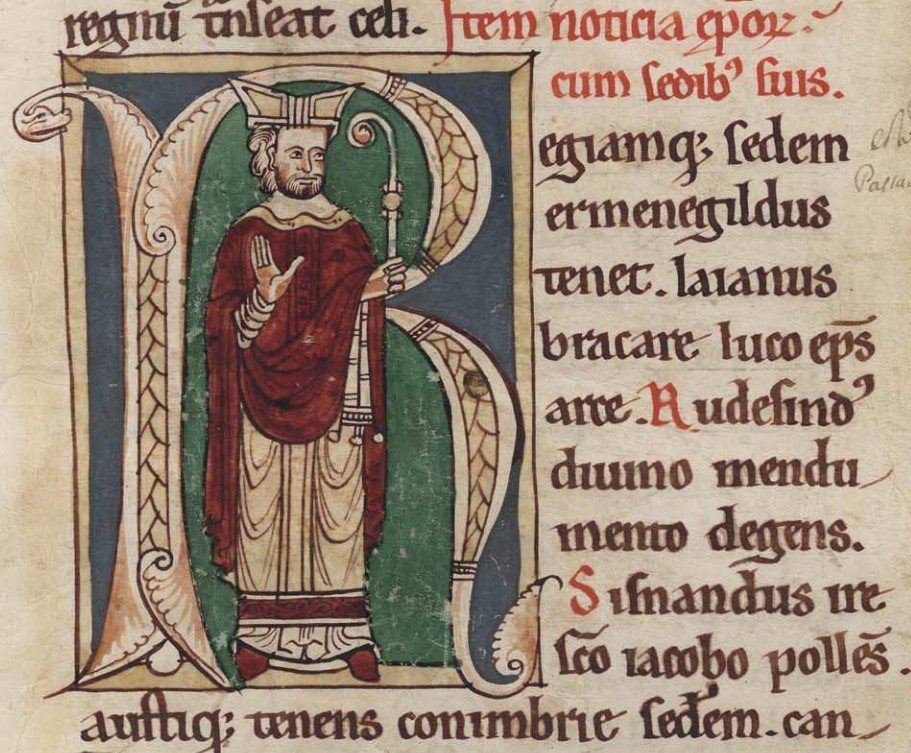 regnū trāseat celi. Item noticia ep̄oꝝ.
cum sedib⁹ suis.
Regiamq; sedem
ermenegildus
tenet. laianus
bracare luco ep̄s
arce. Rudesind⁹
diuino mendu
mento degens.
Sisnandus ire
sc̄o iacobo pollēs.
austiq; tenens conimbrie sedem. can